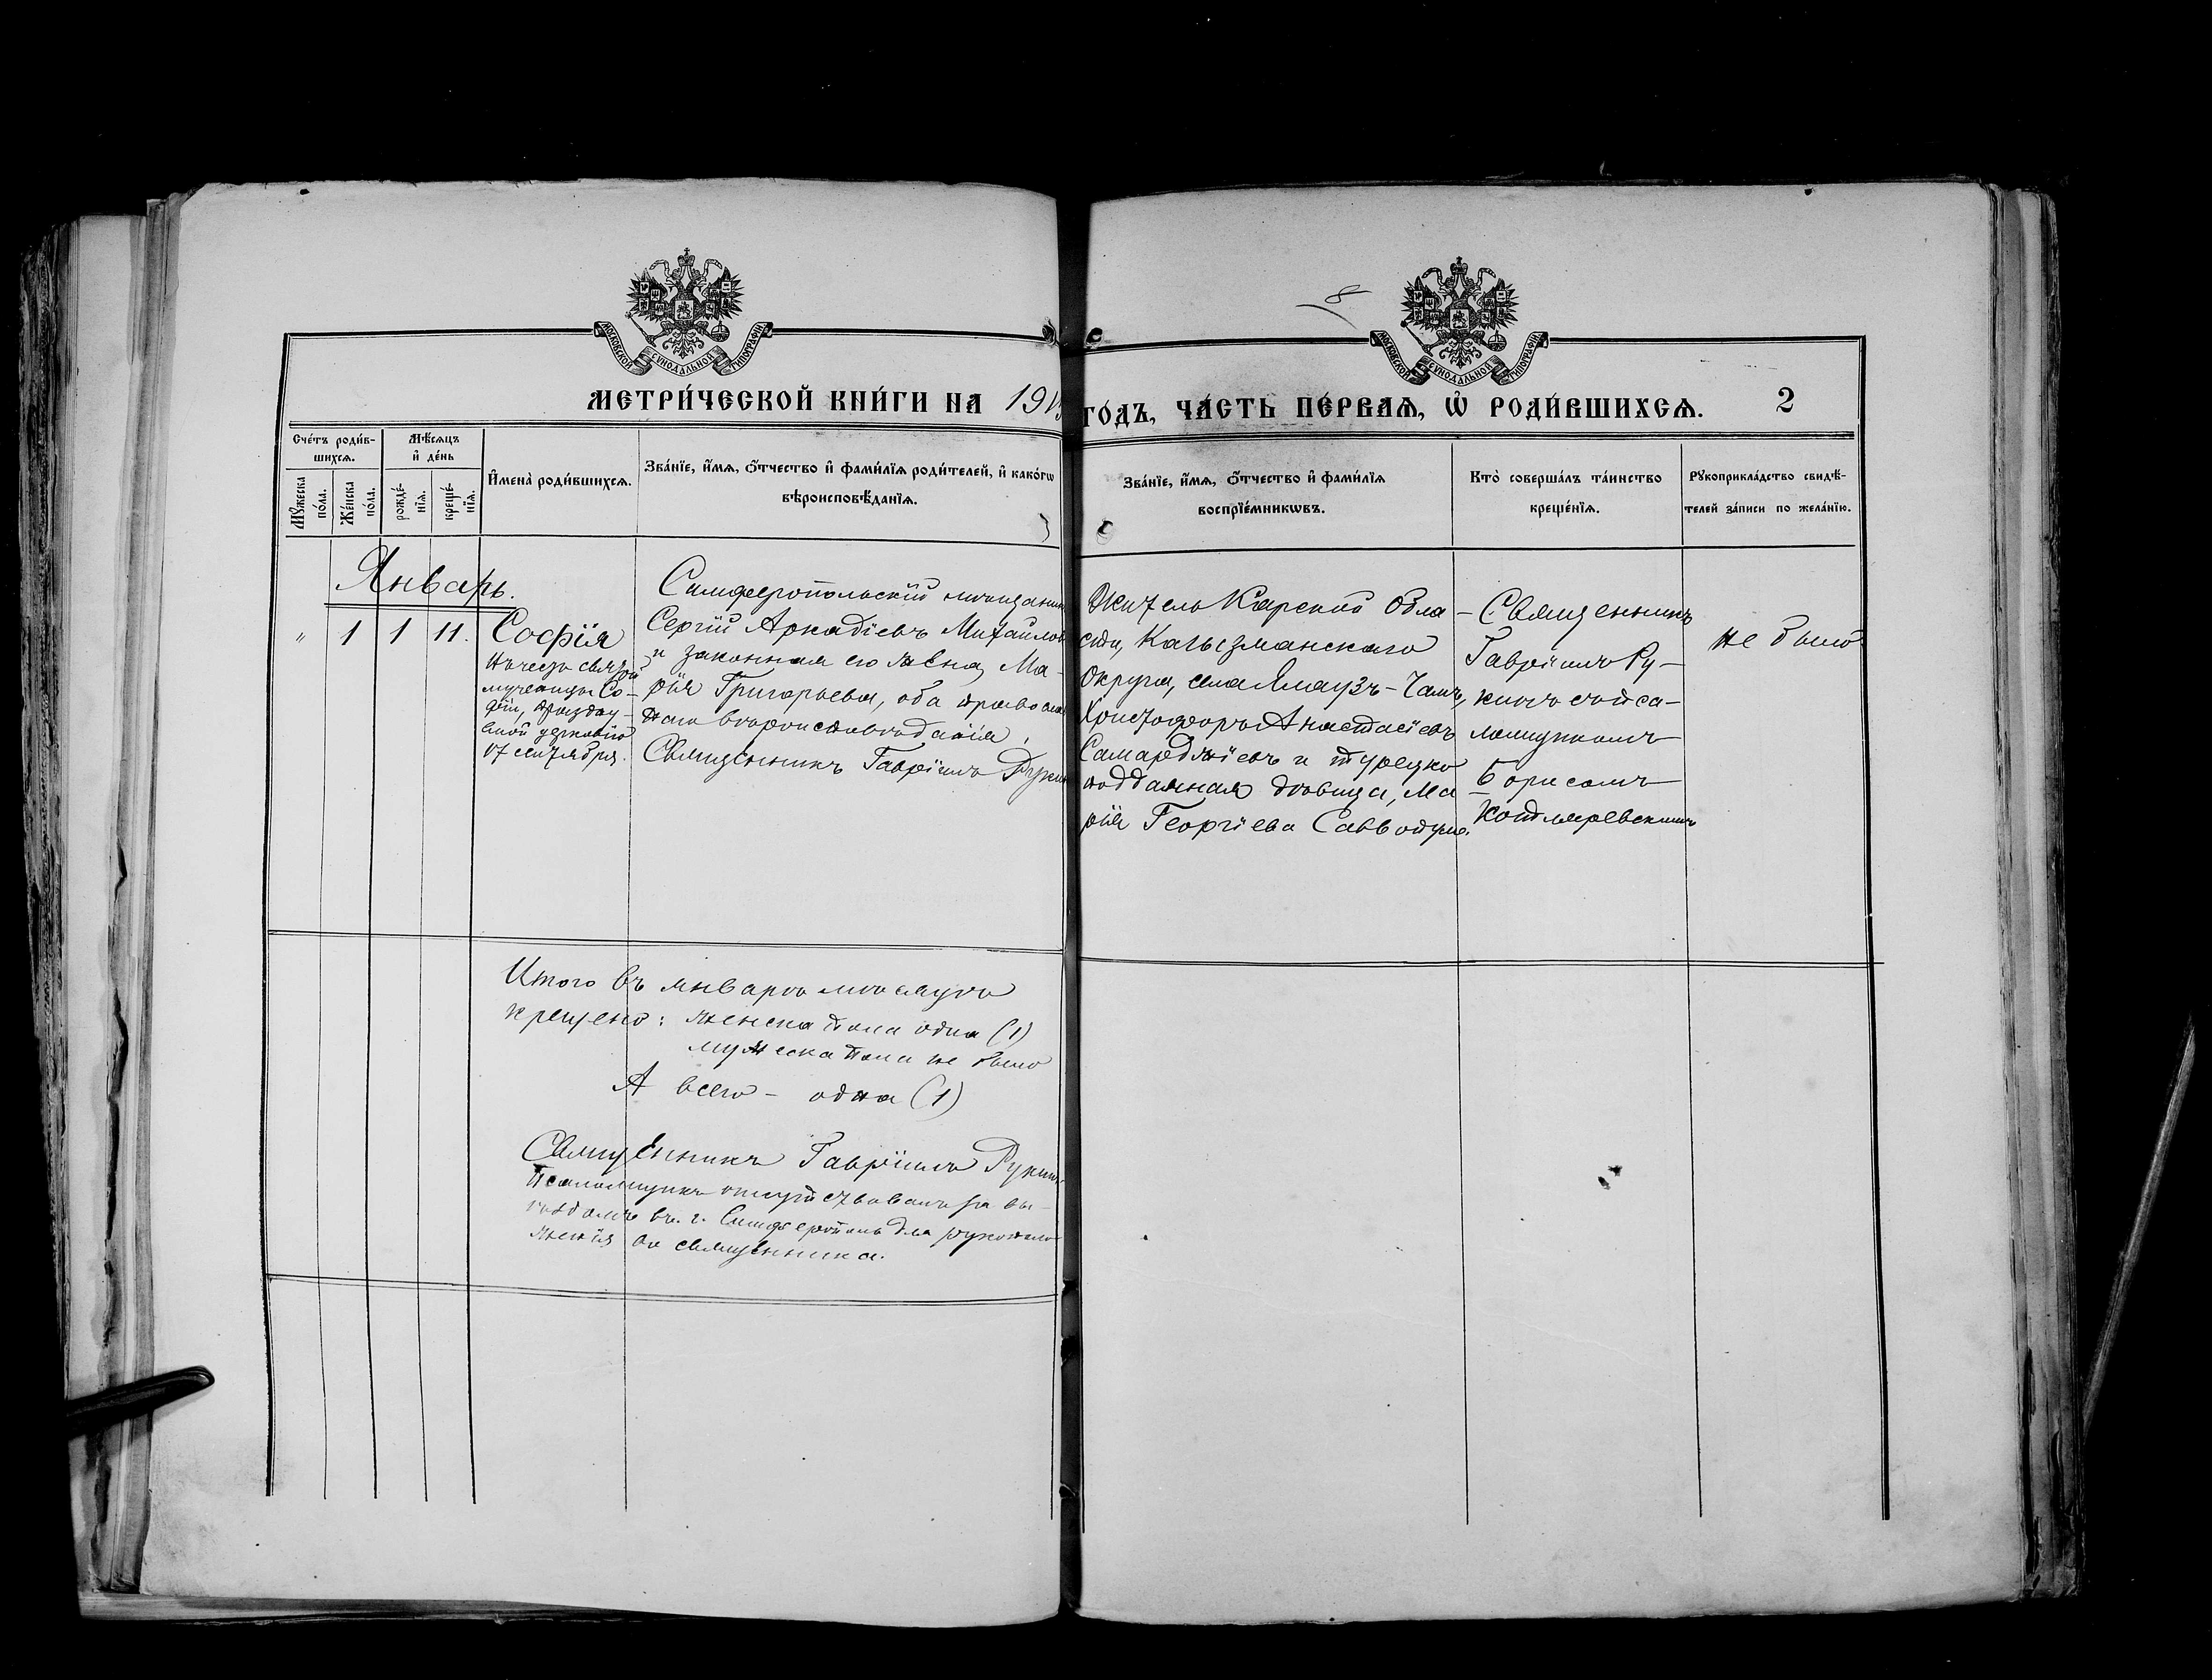 8
МОСКОВСКОЙ СѴНОДАЛЬНОЙ ТИПОГРАФІИ
МОСКОВСКОЙ СѴНОДАЛЬНОЙ ТИПОГРАФІИ
МЕТРИ́ЧЕСКОЙ КНИ́ГИ НА 191
ГО́ДЪ, ЧА́СТЬ ПЕ́РВАѦ, Ѡ҆ РОДИ́ВШИХСѦ.
2
Сче́тъ роди́в-
шихсѧ.
Мꙋ́жеска
по́ла.
Же́нска
по́ла.
Мѣ́сѧцъ
и҆ де́нь
рожде́-
нїѧ.
креще́-
нїѧ.
И҆мена̀ роди́вшихсѧ.
Зва́нїе, и҆́мѧ, ѻ҆́тчество и҆ фами́лїѧ роди́телей, и҆ како́гѡ
вѣроисповѣ́данїѧ.
Зва́нїе, и҆́мѧ, ѻ҆́тчество и҆ фами́лїѧ
воспрїе́мникѡвъ.
Кто̀ соверша́лъ та́инство
креще́нїѧ.
Рꙋкоприкла́дство свидѣ́-
телей за́писи по жела́нїю.
Январь.
" 1 1 11.
Софія
въ честь святой
мученицы Со-
фіи, праздну-
емой церковію
17 сентября.
Симферопольскій мѣщанин
Сергій Аркадіевъ Михайлов
и законная его жена, Ма-
рія Григорьева, оба православ
наго вѣроисповѣданія.
Священникъ Гавріилъ Рукин
Житель Карской Обла-
сти, Кагызманскаго
Округа, села Ялаузъ-Чамъ,
Христофоръ Анастасіевъ
Самарджіевъ и турецко
подданная дѣвица, Ма
рія Георгіева
Священникъ
Гавріилъ Ру-
кинъ съ псa-
ломщикомъ
Борисомъ
Котляревскимъ
не было
Итого въ январѣ мѣсяцѣ
крещено: женска пола одна (1)
мужеска пола не было
А всего - одна (1)
Священникъ Гавріилъ Рукинъ
Псаломщикъ отсутствовалъ за вы-
ѣздомъ въ г. Симферополь для рукополо
женія во священника.